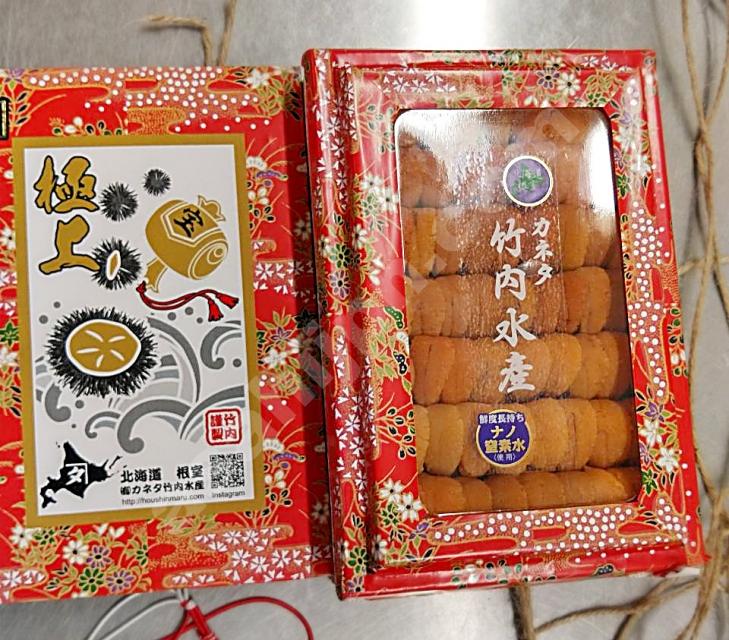 極上
宝
竹内
謹製
タ
北海道 根室
㈲カネタ竹内水産
http://houshinmaru.com
Instagram
カネタ
竹内水産
鮮度長持ち
ナノ
窒素水
(使用)